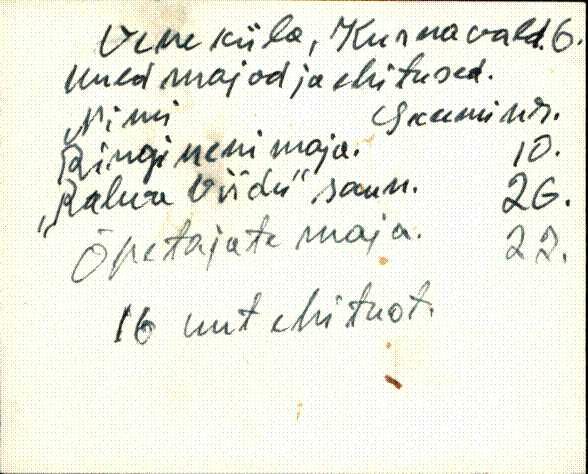 Vene küla, Kurna vald. 6.
uued majad ja ehitused.
Nimi Skeemi nr.
maja. 10.
"Rahva saun. 26.
Õpetajate maja. 22.
16 uut ehitust.